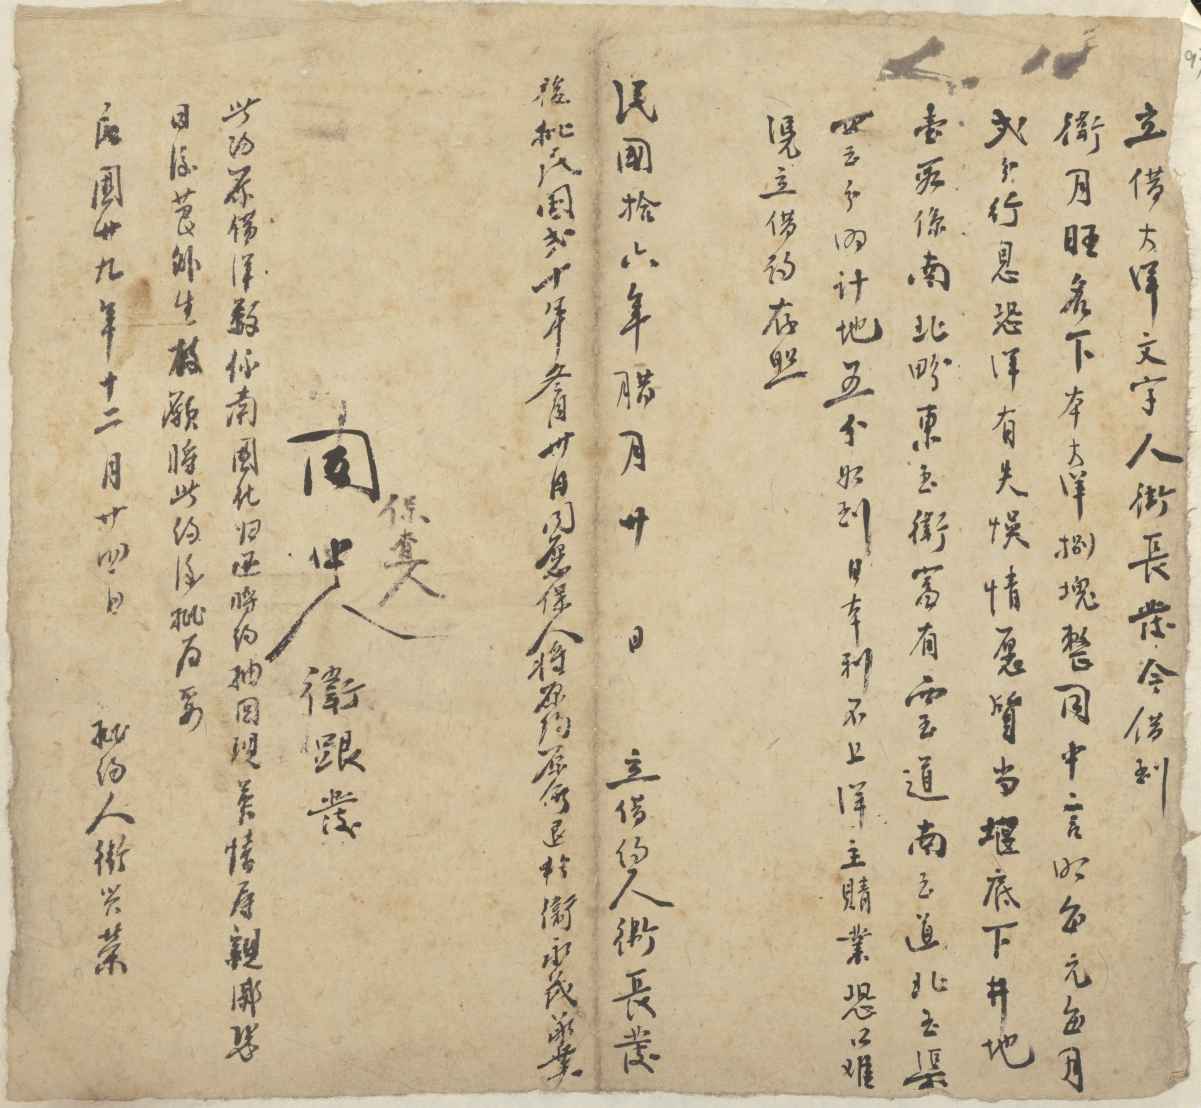 立借大洋文字人衛長發今借到
衛月旺名下本大洋捌塊整同中言明每元每月
弍分行息恐洋有失悞情愿質當堰底下井地
壹段係南北畛東至衛富有西至道南至道北至渠
四至分明計地五分如到日本利不上洋主賭業恐口难
凴立借約存照
民國拾六年腊月廿 日 立借約人衛長發
後批民國弍十年叁月廿日同愿保人將原約原房退於衛永茂承業
同中人 保查人 衛銀發
此約原借洋數係南園化归还將約抽回現美情厚親鄰恐
日後莨外生枝願將此約後批为妥
民國廿九年十二月廿四日 批約人衛兴荣